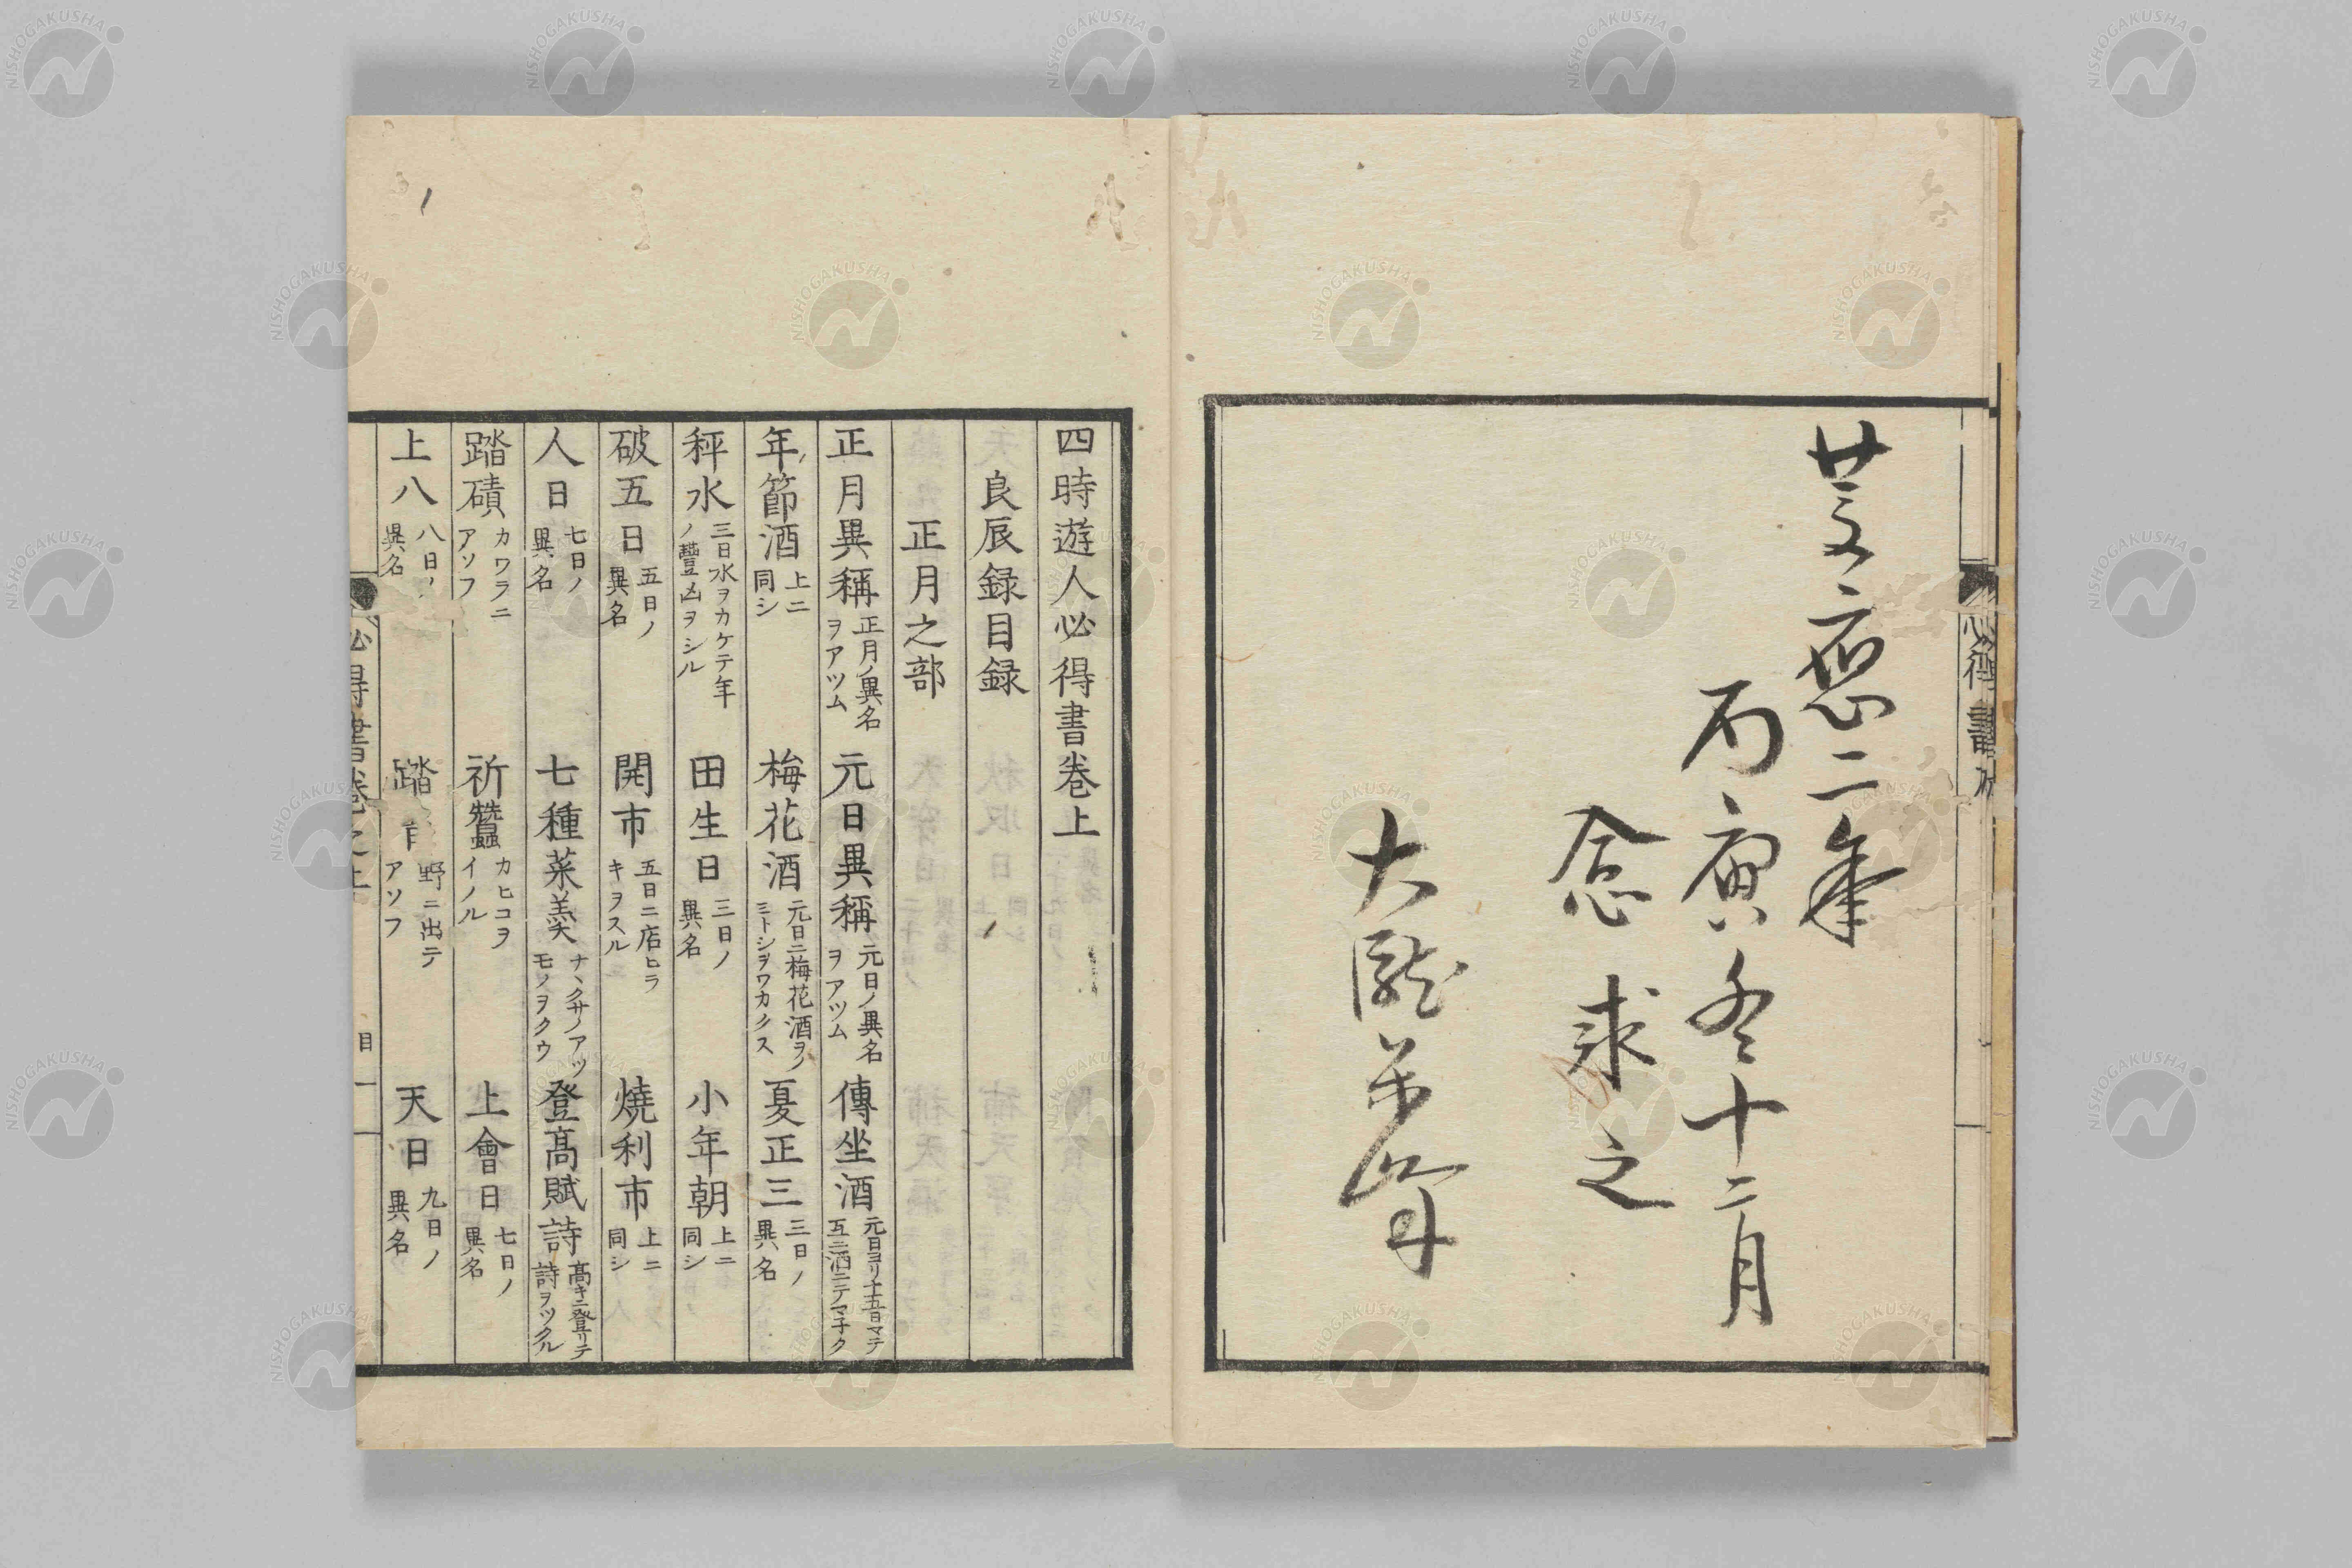 慶應二年
丙寅冬十二月
念求之
四時遊人必得書卷上
良辰録目録
正月之部
正月異稱 正月ノ異名ヲアツム 元日異稱 元日ノ異名ヲアツム 傳坐酒 元日ヨリ十五日マテ互ニ酒ニテマ子ク
年節酒 上ニ同シ 梅花酒 元日ニ梅花酒ヲノミトシヲワカクス 夏正三 三日ノ異名
秤水 三日水ヲカケテ年ノ豐凶ヲシル 田生日 三日ノ異名 小年朝 上ニ同シ
破五日 五日ノ異名 開市 五日ニ店ヒラキヲスル 燒利市 上ニ同シ
人日 七日ノ異名 七種菜羹 ナヽクサノアツモノヲクウ 登高賦詩 高キニ登リテ詩ヲツクル
踏磧 カワラニアソフ 祈蠶 カヒコヲイノル 上會日 七日ノ異名
上八 八日ノ異名 踏 野ニ出テアソフ 天日 九日ノ異名
必得書卷之上
目一
必得書
NISHOGAKUSHA